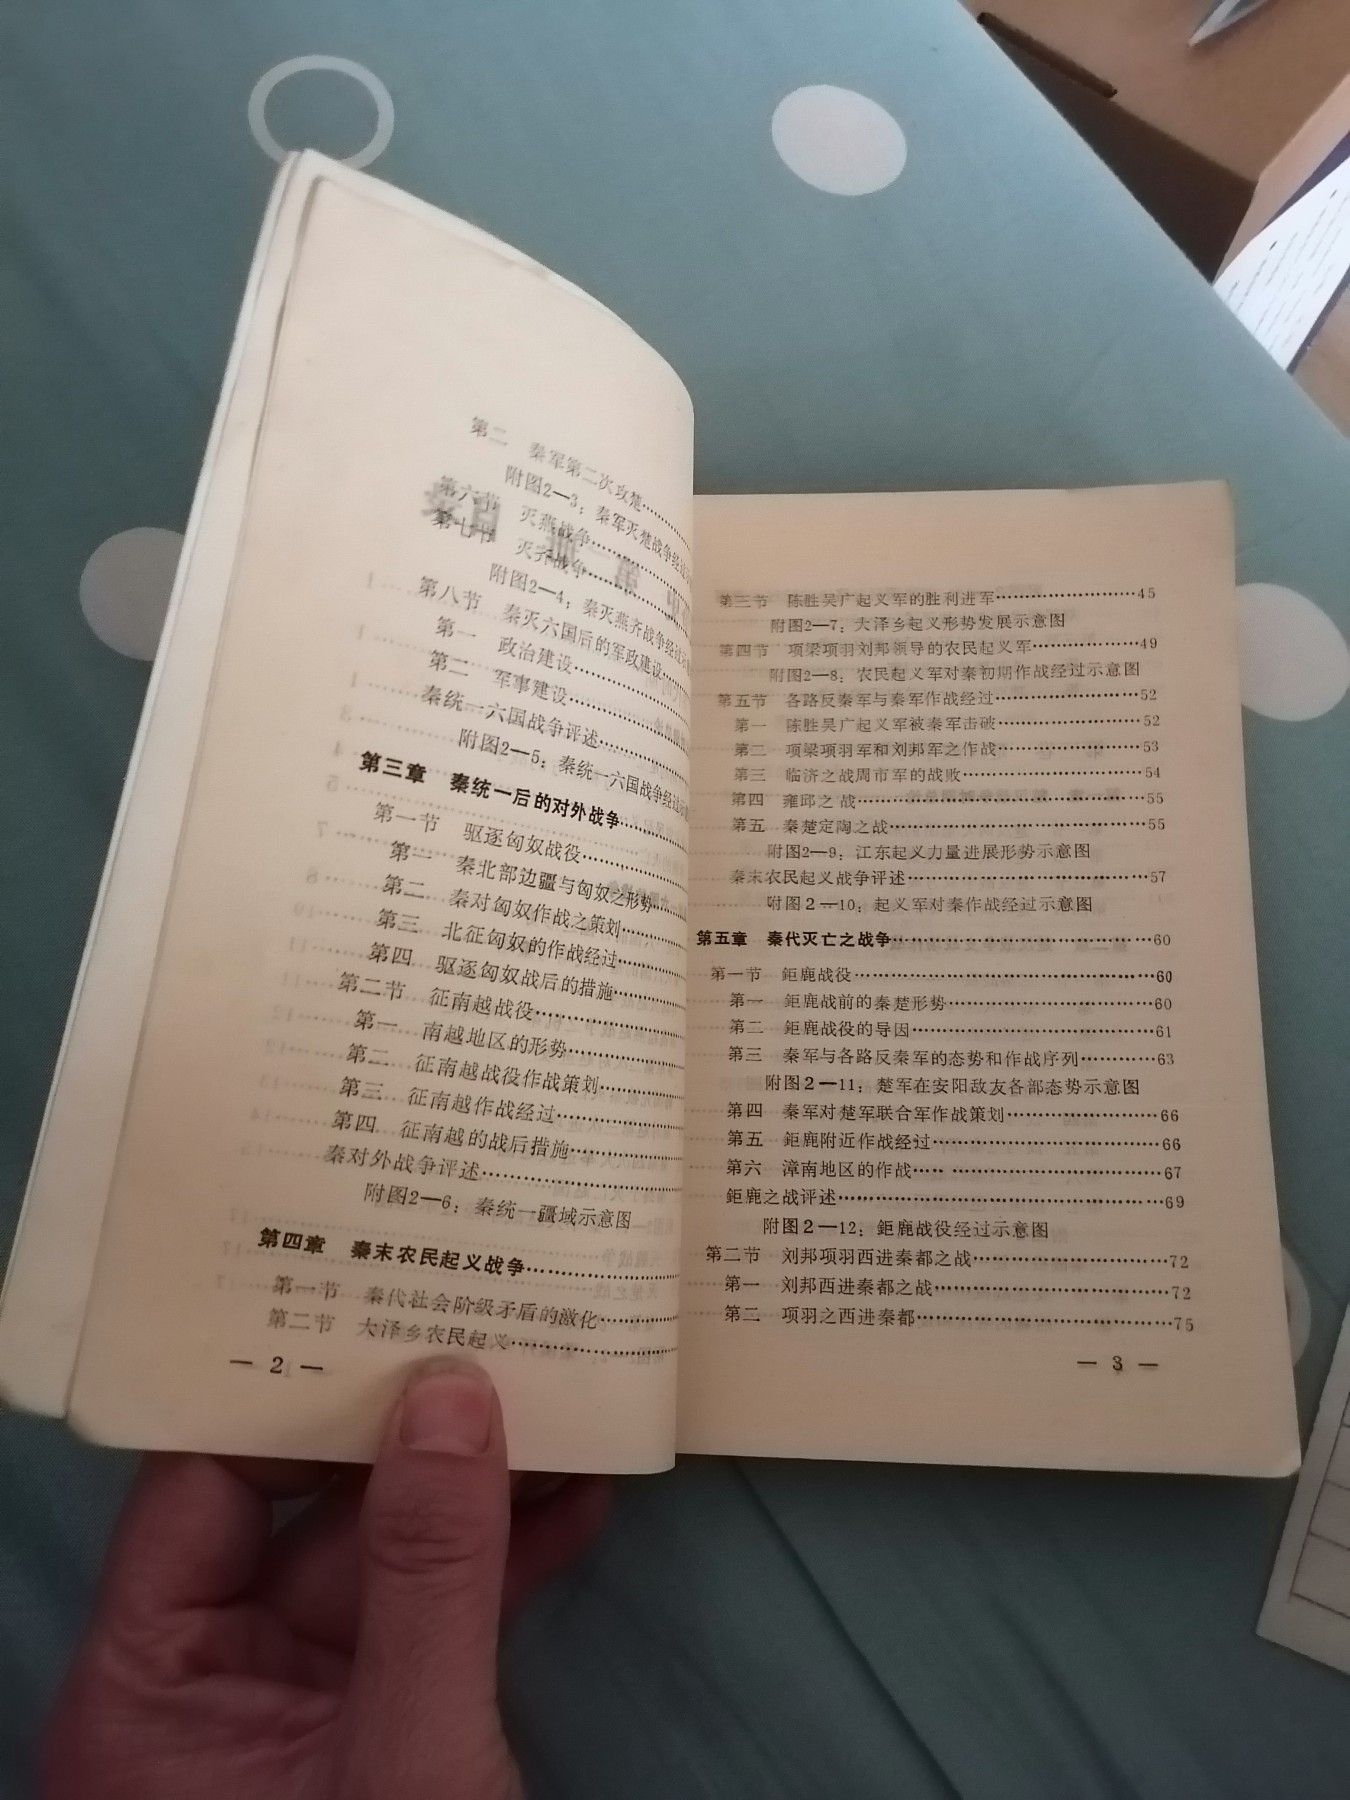 第二 秦军第二次攻楚……
附图2—3：秦军灭楚战争经过示
第六节 灭燕战争……
第七节 灭齐战争……
附图2—4：秦灭燕齐战争经过示
第八节 秦灭六国后的军政建设……
第一 政治建设……
第二 军事建设……
秦统一六国战争评述……
附图2—5：秦统一六国战争经过示
第三章 秦统一后的对外战争……
第一节 驱逐匈奴战役……
第一 秦北部边疆与匈奴之形势……
第二 秦对匈奴作战之策划……
第三 北征匈奴的作战经过……
第四 驱逐匈奴战后的措施……
第二节 征南越战役……
第一 南越地区的形势……
第二 征南越战役作战策划……
第三 征南越作战经过……
第四 征南越的战后措施……
秦对外战争评述……
附图2—6：秦统一疆域示意图
第四章 秦末农民起义战争……
第一节 秦代社会阶级矛盾的激化……
第二节 大泽乡农民起义……
— 2 —
第三节 陈胜吴广起义军的胜利进军……45
附图2—7：大泽乡起义形势发展示意图
第四节 项梁项羽刘邦领导的农民起义军……49
附图2—8：农民起义军对秦初期作战经过示意图
第五节 各路反秦军与秦军作战经过……52
第一 陈胜吴广起义军被秦军击破……52
第二 项梁项羽军和刘邦军之作战……53
第三 临济之战周市军的战败……54
第四 雍邱之战……55
第五 秦楚定陶之战……55
附图2—9：江东起义力量进展形势示意图
秦末农民起义战争评述……57
附图2—10：起义军对秦作战经过示意图
第五章 秦代灭亡之战争……60
第一节 鉅鹿战役……60
第一 鉅鹿战前的秦楚形势……60
第二 鉅鹿战役的导因……61
第三 秦军与各路反秦军的态势和作战序列……63
附图2—11：楚军在安阳敌友各部态势示意图
第四 秦军对楚军联合军作战策划……66
第五 鉅鹿附近作战经过……66
第六 漳南地区的作战……67
鉅鹿之战评述……69
附图2—12：鉅鹿战役经过示意图
第二节 刘邦项羽西进秦都之战……72
第一 刘邦西进秦都之战……72
第二 项羽之西进秦都……75
— 3 —